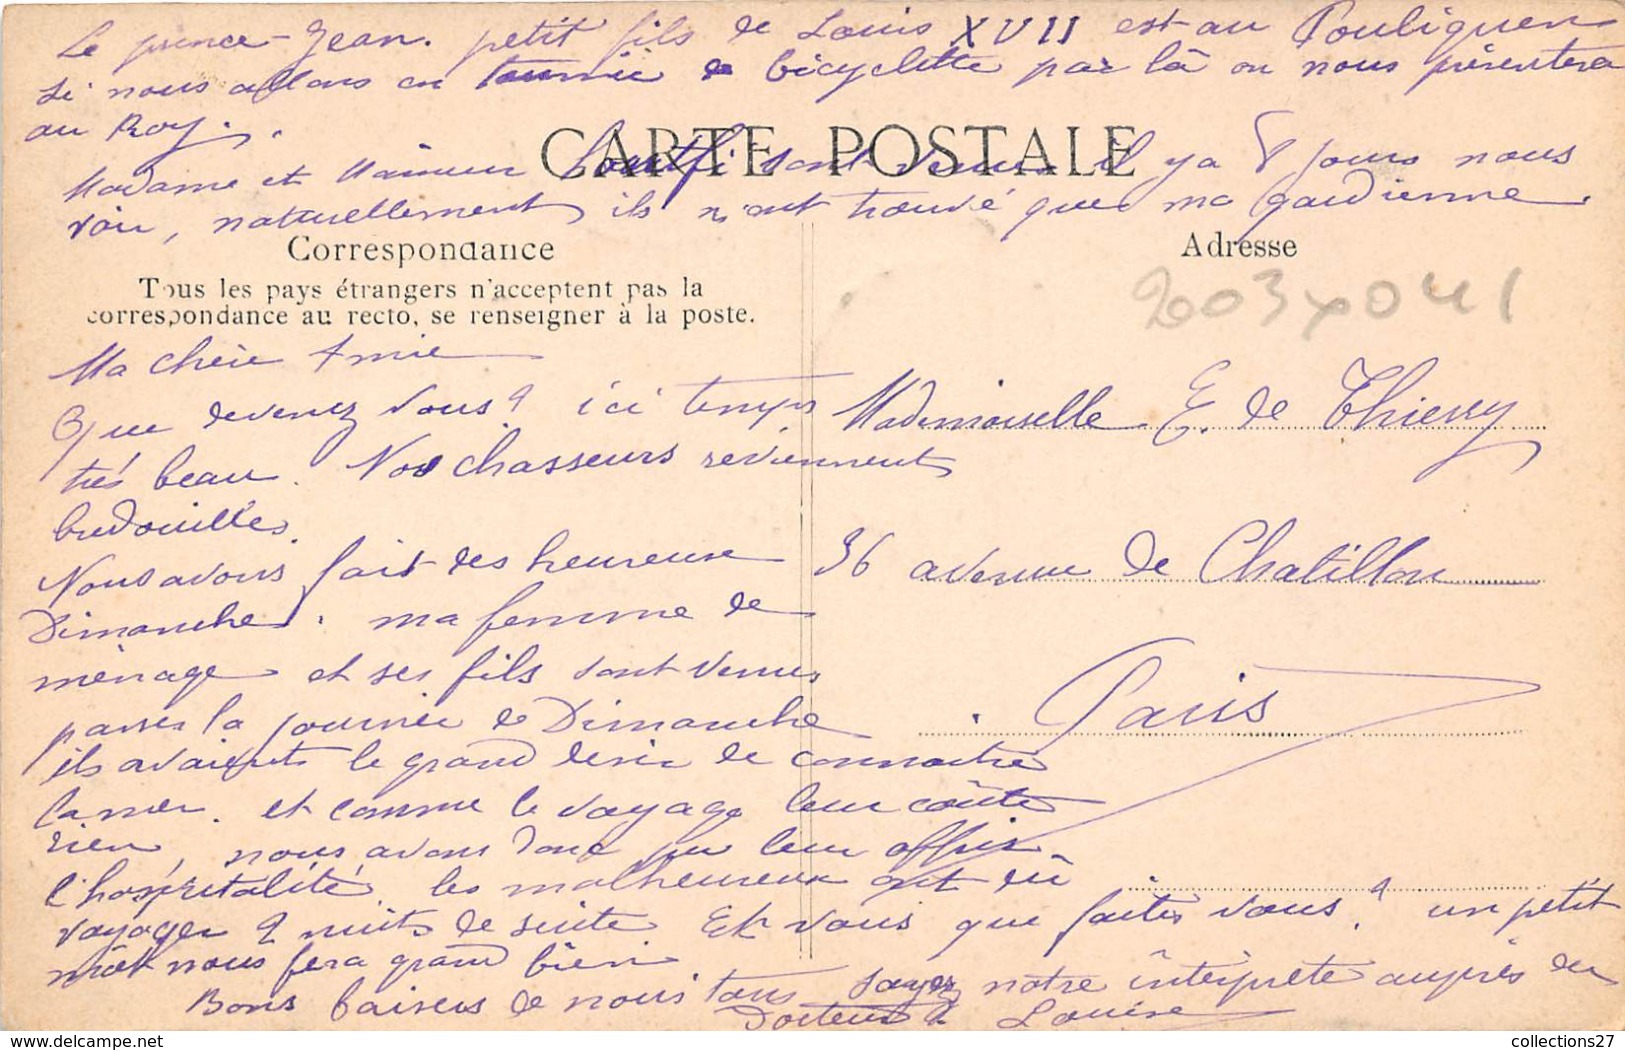 Le prince Jean. petit fils de Louis XVII est au Pouliguen
si nous allons en tournée de bicyclette par là on nous présentera
au Roy..
CARTE POSTALE
Madame et sont venus il y a 8 jours nous
voir, naturellement ils n'ont trouvé que ma gardienne.
Correspondance
Tous les pays étrangers n'acceptent pas la
correspondance au recto, se renseigner à la poste.
Ma chère Amie
Que devenez vous? ici temps
très beau. Nos chasseurs reviennent
bredouilles.
Nous avons fait des heureux
Dimanche. ma femme de
ménage et ses fils sont venus
passer la journée de Dimanche
ils avaient le grand desir de connaitre
la mer. et comme le voyage leur coûte
rien, nous avons donc pu leur offrir
l'hospitalité, les malheureux ont dû
voyager 2 nuits de suite Et vous que faites vous? un petit
mot nous fera grand bien
Bons baisers de nous tous soyez notre interprete auprès du
Docteur Louise
Adresse
2003x041
Mademoiselle E. de Thierry
36 avenue de Chatillon
Paris
collections27